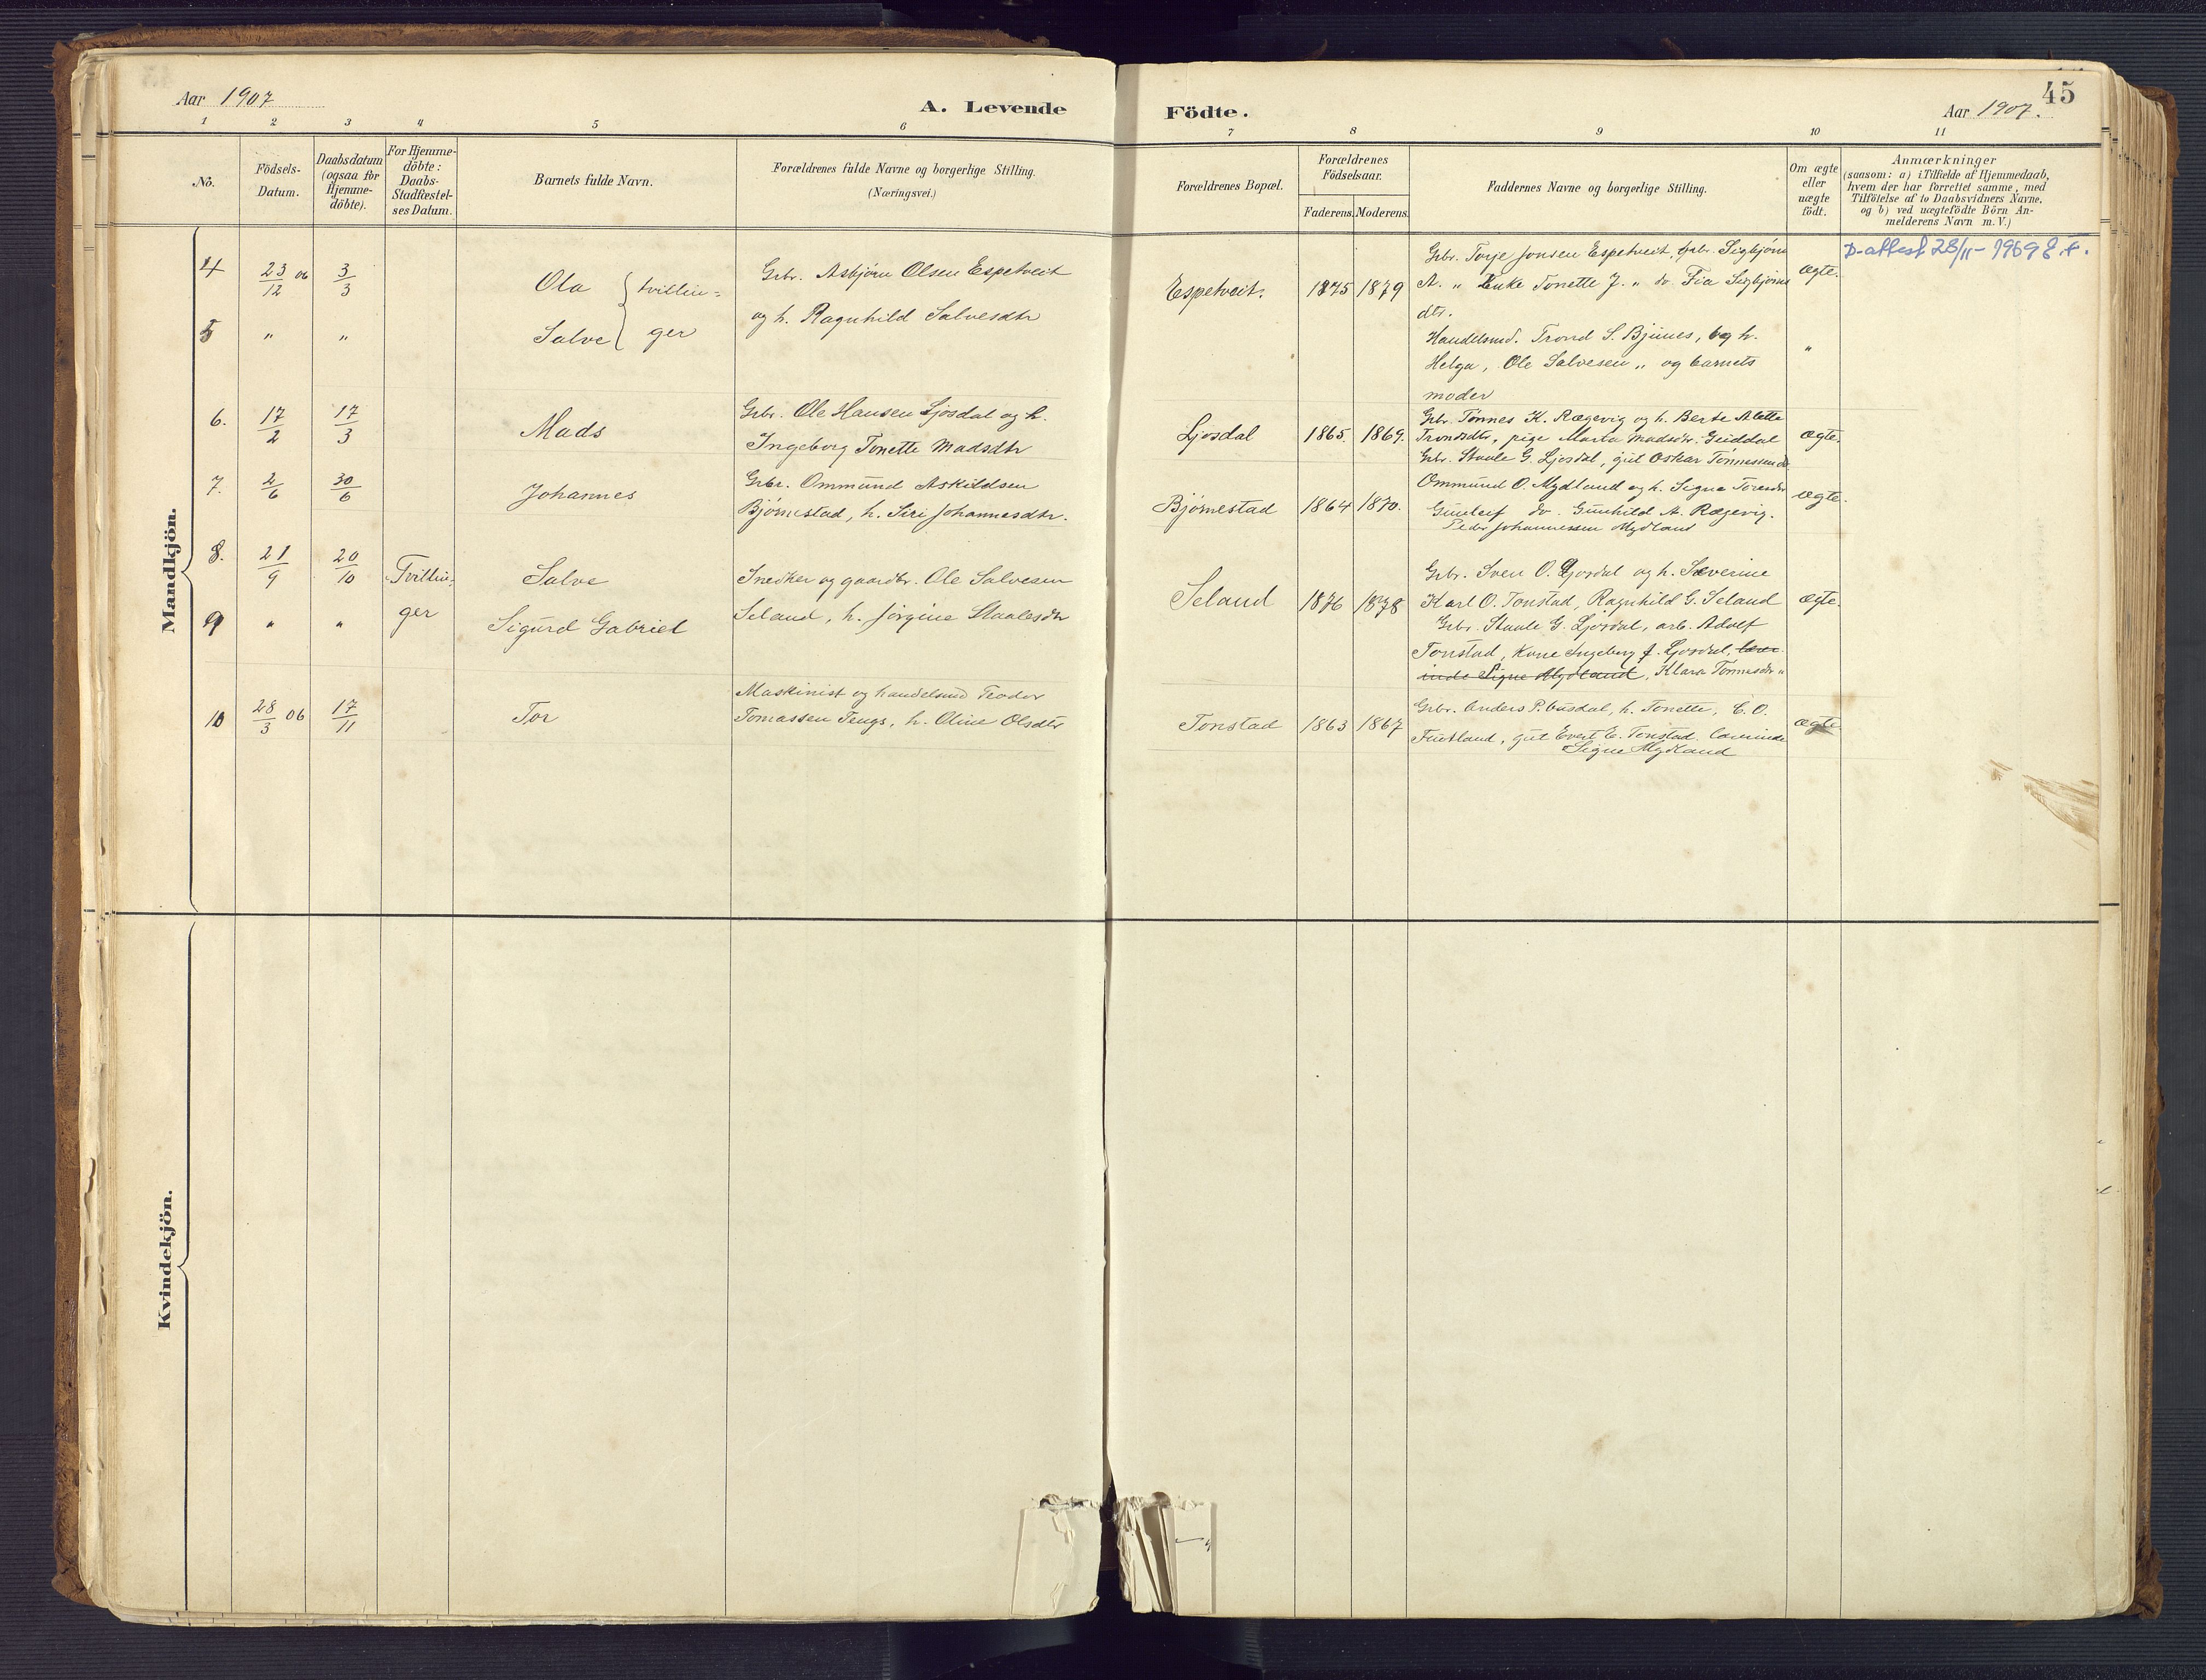 45
Aar 1907
A. Levende
Födte.
Aar 1907.
1 2 3 4 5 6 7 8 9 10 11
No.
Födsels-
Datum.
Daabsdatum
(ogsaa for
Hjemme-
döbte).
For Hjemme-
döbte:
Daabs-
Stadfæstel-
ses Datum.
Barnets fulde Navn.
Forældrenes fulde Navne og borgerlige Stilling.
(Næringsvei.)
Forældrenes Bopæl.
Forældrenes
Födselsaar.
Faderens. Moderens.
Faddernes Navne og borgerlige Stilling.
Om ægte
eller
uægte
födt.
Anmærkninger
(saasom: a) i Tilfælde af Hjemmedaab,
hvem der har forrettet samme, med
Tilföielse af to Daabsvidners Navne,
og b) ved uægtefödte Börn An-
melderens Navn m. V.)
Mandkjön.
4 23/12 06 3/3 Ola } tvillin=
Gbr. Asbjørn Olsen Espetveit
5 " " Salve } ger
og h. Ragnhild Salvesdtr
Espetveit. 1875 1879
Gbr. Torje Jonsen Espetveit, gbr. Sigbjørn
A. " Enke Tonette J. " do. Fia Sigbjørns
dtr.
Handelsmd. Trond S. Bjunes, og h.
Helga, Ole Salvesen " og barnets
moder
ægte.
"
D-attest 28/11-1969
6. 17/2 17/3 Mads
Gbr. Ole Hansen Ljosdal og h.
Ingeborg Tonette Madsdtr
Ljosdal 1865. 1869.
Gbr. Tønnes K. Rægevig og h. Berte Alette
Trondsdtr, pige Marta Madsdtr. Geiddal
Gbr. Staale G. Ljosdal, gut Oskar Tønnessen do
ægte.
7. 2/6 30/6 Johannes
Gbr. Ommund Askildsen
Bjørnestad, h. Siri Johannesdtr.
Bjørnestad 1864 1870.
Ommund O. Mydland og h. Signe Toresdtr
Gunleif do. Gunhild A. Rægevig.
Peder Johannessen Mydland
ægte.
8. 21/9 20/10 Tvillin= Salve
Snedker og gaardbr. Ole Salvesen
9 " " ger Sigurd Gabriel
Seland, h. Jørgine Staalesdtr
Seland 1876 1878
Gbr. Sven O. Ljosdal og h. Severine
Karl O. Tonstad, Ragnhild G. Seland
Gbr. Staale G. Ljosdal, arb. Adolf
Tonstad, Kone Ingeborg J. Ljosdal, lærer-
inde Signe Mydland, Klara Tønnesdtr "
ægte.
10 28/3 06 17/11 Tor
Maskinist og handelsmd Teodor
Tomassen Tengs, h. Oline Olsdtr
Tonstad 1863 1867
Gbr. Anders P. Øusdal, h. Tonette, E. O.
Fustland, gut Evert E. Tonstad. Lærerinde
Signe Mydland
ægte
Kvindekjön.